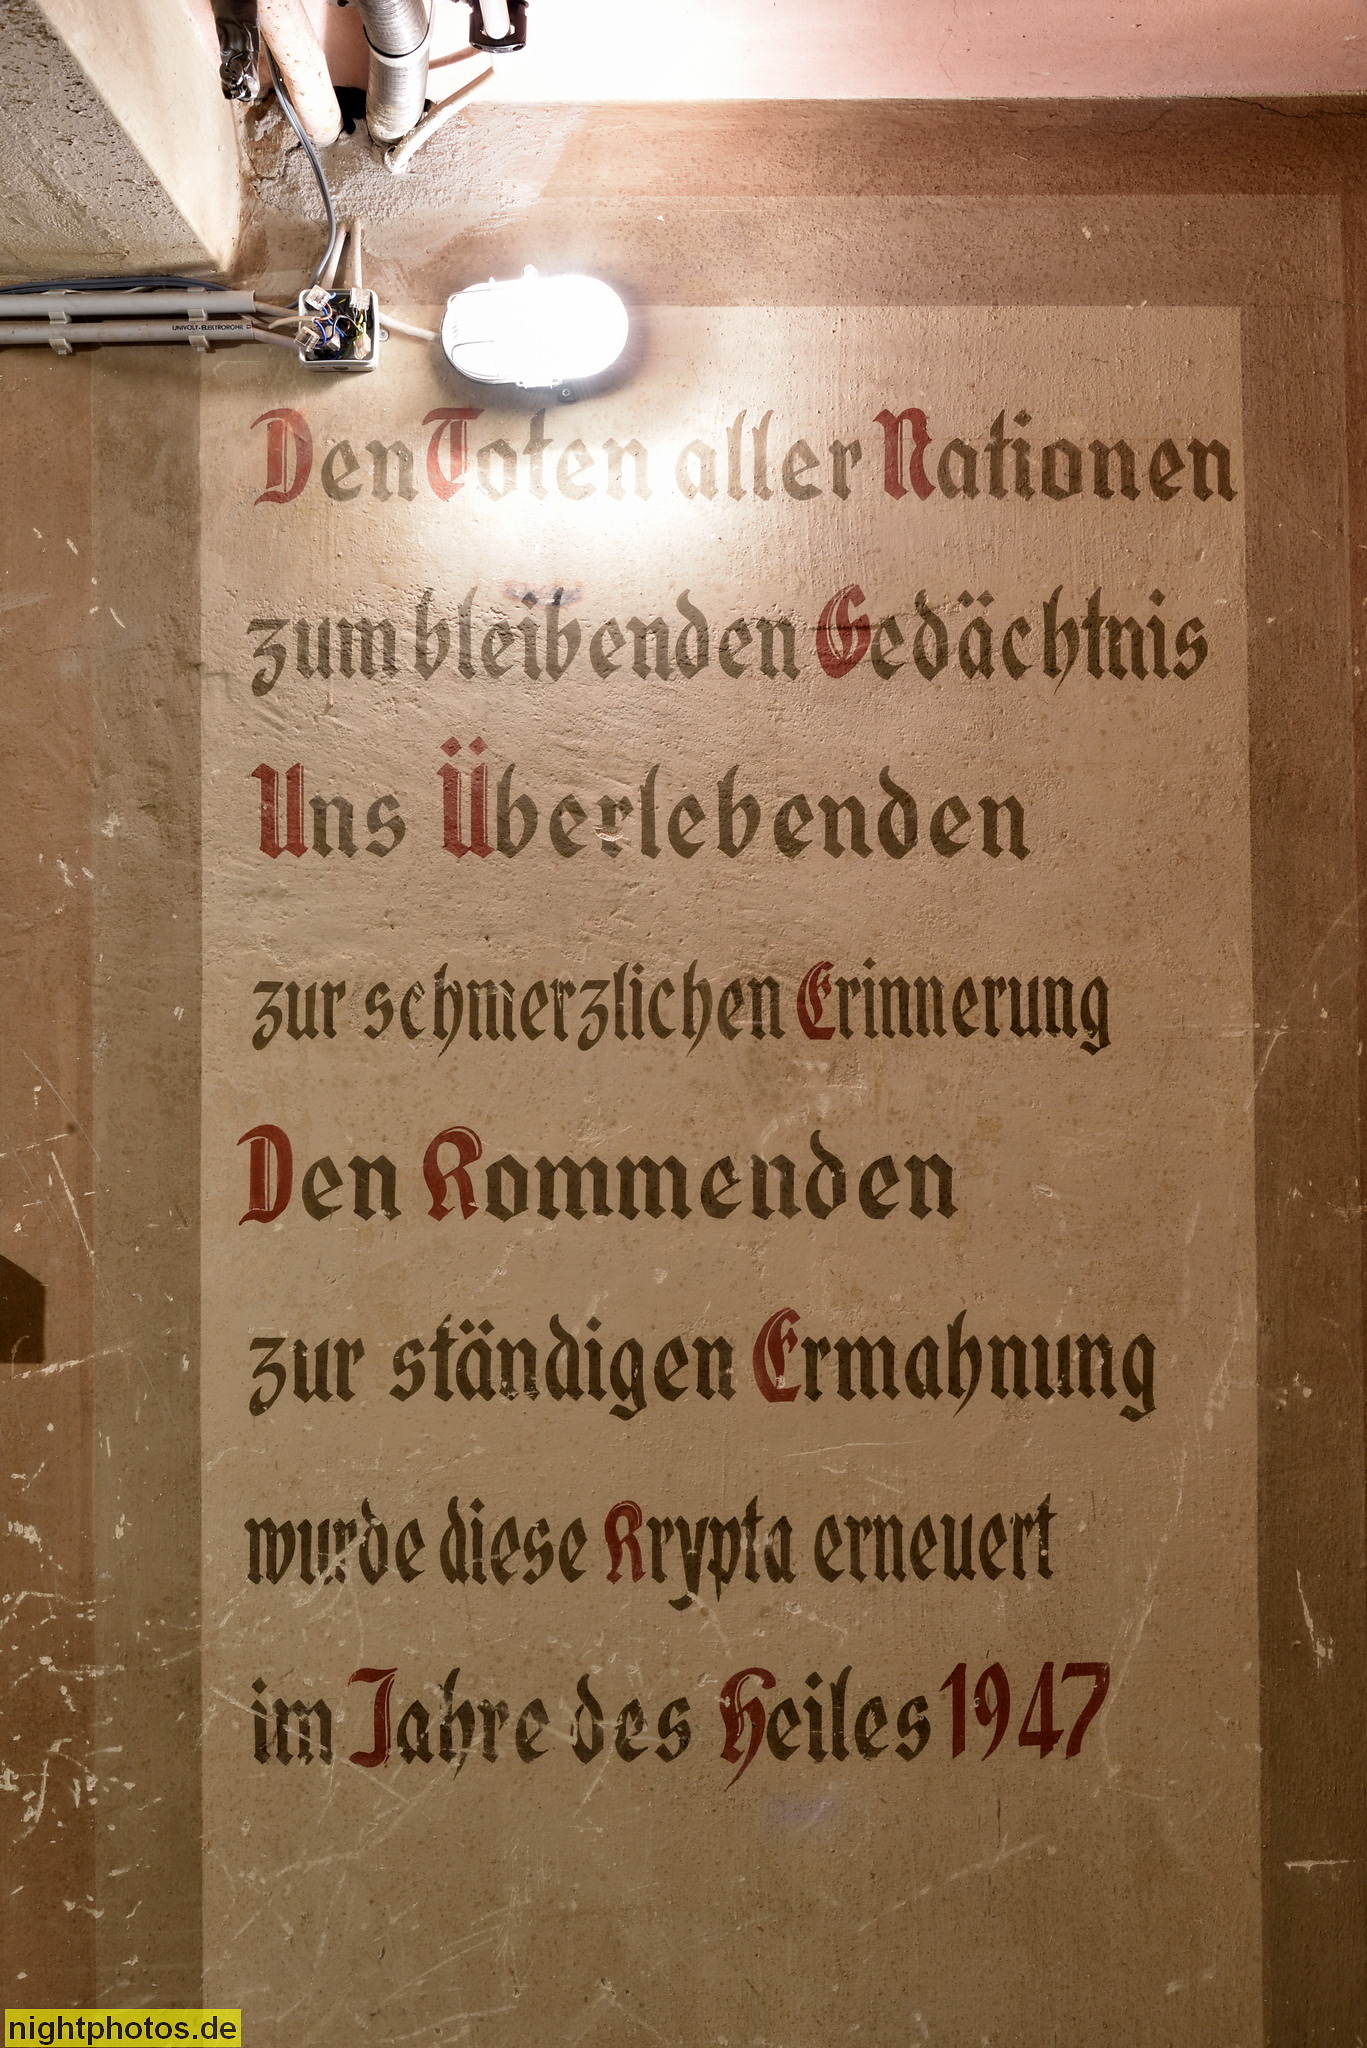 UNIVOLT-ELEKTROROHR
Den Toten aller Nationen
zum bleibenden Gedächtnis
Uns Überlebenden
zur schmerzlichen Erinnerung
Den Kommenden
zur ständigen Ermahnung
wurde diese Krypta erneuert
im Jahre des Heiles 1947
nightphotos.de